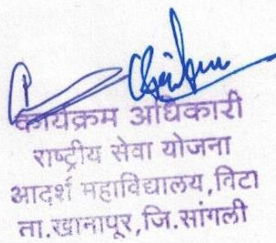 कार्यक्रम अधिकारी
राष्ट्रीय सेवा योजना
आदर्श महाविद्यालय,विटा
ता.खानापूर,जि.सांगली